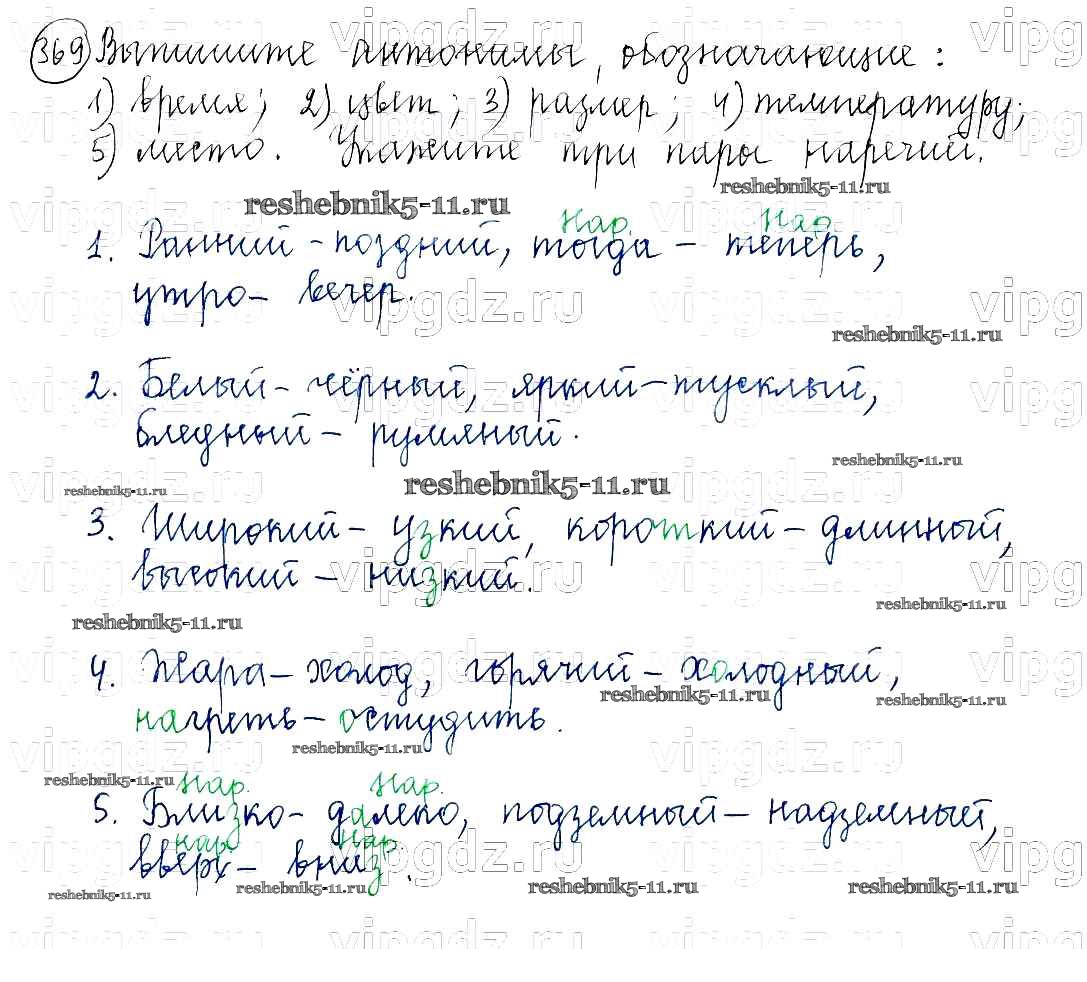 369 Выпишите антонимы, обозначающие:
1) время; 2) цвет; 3) размер; 4) температуру;
5) место. Укажите три пары наречий.
reshebnik5-11.ru
reshebnik5-11.ru
Нар. Нар.
1. Ранний - поздний, тогда - теперь,
утро - вечер.
reshebnik5-11.ru
2. Белый - чёрный, яркий - тусклый,
бледный - румяный.
reshebnik5-11.ru
reshebnik5-11.ru
reshebnik5-11.ru
3. Широкий - узкий, короткий - длинный,
высокий - низкий.
reshebnik5-11.ru
reshebnik5-11.ru
4. Жара - холод, горячий - холодный,
reshebnik5-11.ru
reshebnik5-11.ru
нагреть - остудить.
reshebnik5-11.ru
reshebnik5-11.ru
Нар. Нар.
5. Близко - далеко, подземный - надземный,
нар. Нар.
вверх - вниз.
reshebnik5-11.ru
reshebnik5-11.ru
reshebnik5-11.ru
reshebnik5-11.ru